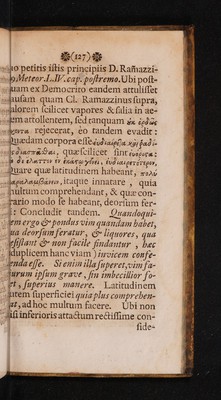 (127)
io petitis istis principiis D. Ramazzi-
Meteor. L. IV. cap. postremo. Ubi post-
uam ex Democrito eandem attulisset
ausam quam Cl. Ramazzinus supra,
alorem scilicet vapores & salia in ae-
em attollentem, sed tanquam
rejecerat, eò tandem evadit:
Quædam corpora esse
quæ scilicet sint
quare quæ latitudinem habeant,
itaque innatare, quia
multum comprehendant, & quæ con-
rario modo se habeant, deorsum fer-
: Concludit tandem. Quandoqui-
em ergo & pondus vim quandam habet,
ua deorsum feratur, & liquores, qua
esistant & non facile findantur, hæc
duplicem hanc viam) invicem confe-
enda esse. Si enim illa superet, vim fa-
urum ipsum grave, sin imbecillior fo-
et, superius manere. Latitudinem
utem superficiei quia plus comprehen-
at, ad hoc multum facere. Ubi non
isi inferioris attactum rectissime con-
side-